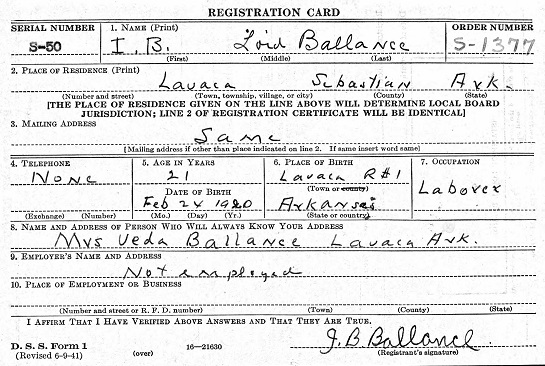 REGISTRATION CARD
SERIAL NUMBER 1. NAME (Print) ORDER NUMBER
S-50 I. B. Loid Ballance S-1377
(First) (Middle) (Last)
2. PLACE OF RESIDENCE (Print)
Lavaca Sebastian Ark.
(Number and street) (Town, township, village, or city) (County) (State)
[THE PLACE OF RESIDENCE GIVEN ON THE LINE ABOVE WILL DETERMINE LOCAL BOARD
JURISDICTION; LINE 2 OF REGISTRATION CERTIFICATE WILL BE IDENTICAL]
3. MAILING ADDRESS
Same
[Mailing address if other than place indicated on line 2. If same insert word same]
4. TELEPHONE 5. AGE IN YEARS 6. PLACE OF BIRTH 7. OCCUPATION
None 21 Lavaca R#1 Laborer
DATE OF BIRTH (Town or county)
Feb 24 1920 Arkansas
(Exchange) (Number) (Mo.) (Day) (Yr.) (State or country)
8. NAME AND ADDRESS OF PERSON WHO WILL ALWAYS KNOW YOUR ADDRESS
Mrs Veda Ballance Lavaca Ark.
9. EMPLOYER'S NAME AND ADDRESS
Not employed
10. PLACE OF EMPLOYMENT OR BUSINESS
(Number and street or R. F. D. number) (Town) (County) (State)
I AFFIRM THAT I HAVE VERIFIED ABOVE ANSWERS AND THAT THEY ARE TRUE.
D. S. S. Form 1 16—21630 J. B. Ballance
(Revised 6-9-41) (over) (Registrant's signature)